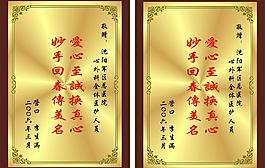 敬赠：沈阳军区总医院
心外科全体医护人员
愛心至誠換真心
妙手回春傳美名
营口 李生满
二〇〇六年三月
敬赠：沈阳军区总医院
心外科全体医护人员
愛心至誠換真心
妙手回春傳美名
营口 李生满
二〇〇六年三月